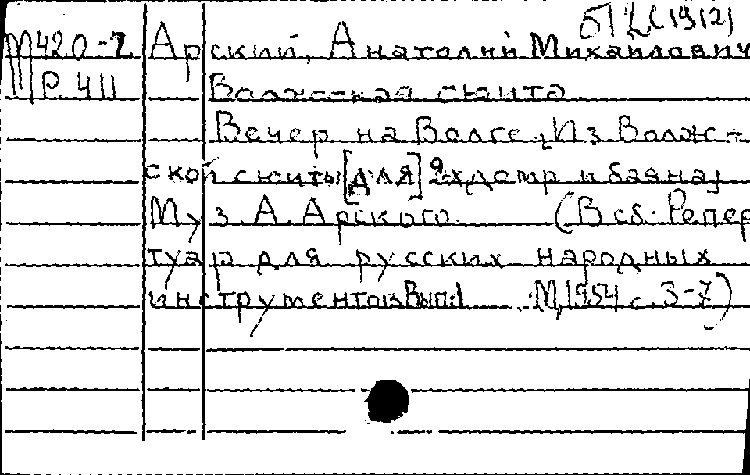 М420-2 Арский, Анатолий Михайлович
Р. 411 Волжская сюита
Вечер на Волге, Из Волж-
ской сюиты [для] 2х домр и баяна]
Муз. А. Арского. (В сб: Репер
туар для русских народных
инструментов Вып. 1 М, 1954 с. 3-7)